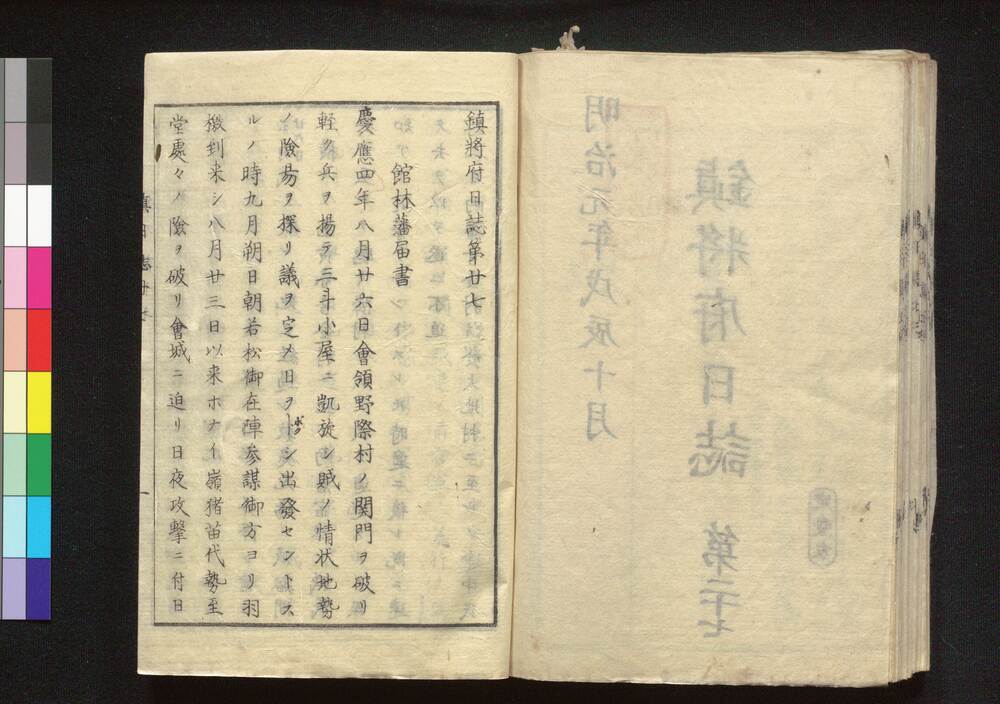 明治元年戊辰十月
鎮將府日誌 第二十七
鎮將府日誌第廿七
館林藩届書
慶應四年八月廿六日會領野際村ノ関門ヲ破リ
輕ク兵ヲ揚テ三斗小屋ニ凱旋シ賊ノ情状地勢
ノ險易ヲ探リ議ヲ定メ日ヲトシ出發セントス
ボク
ルノ時九月朔日朝若松御在陣参謀御方ヨリ羽
檄到来シ八月廿三日以来ホナイ嶺猪苗代勢至
堂處々ノ險ヲ破リ會城ニ迫リ日夜攻撃ニ付日
一